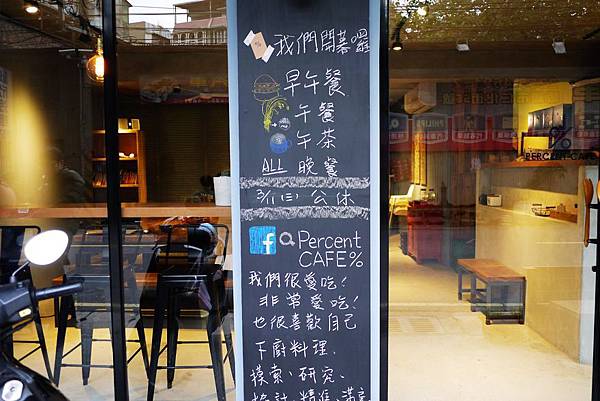 我們開幕囉
早午餐
午餐
午茶
ALL 晚餐
3/1(三) 公休
f Percent
CAFE%
我們很愛吃!
非常愛吃!
也很喜歡自己
下廚料理.
摸索、研究、
%
PERCENT CAFE